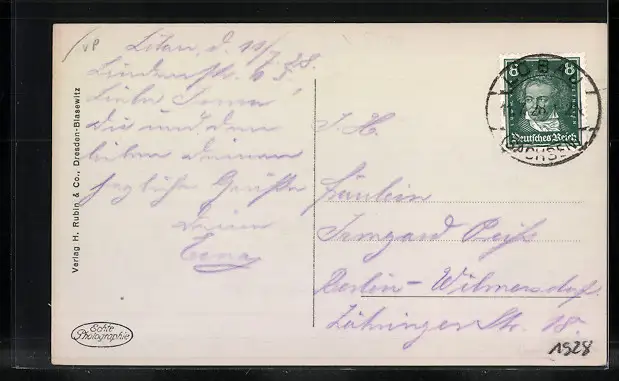 VP
Löbau, d. 11/7.28.
Lindenstr. 43.
Liebe Irma!
Dir und den
lieben Deinen
herzliche Grüße
Deine
Erna
Verlag H. Rubin & Co., Dresden-Blasewitz
Echte
Photographie
8 8
Deutsches Reich
LÖBAU
SACHSEN
I. H.
Fräulein
Irmgard Reiß
Berlin-Wilmersdorf.
Löhninger Str. 18.
1928